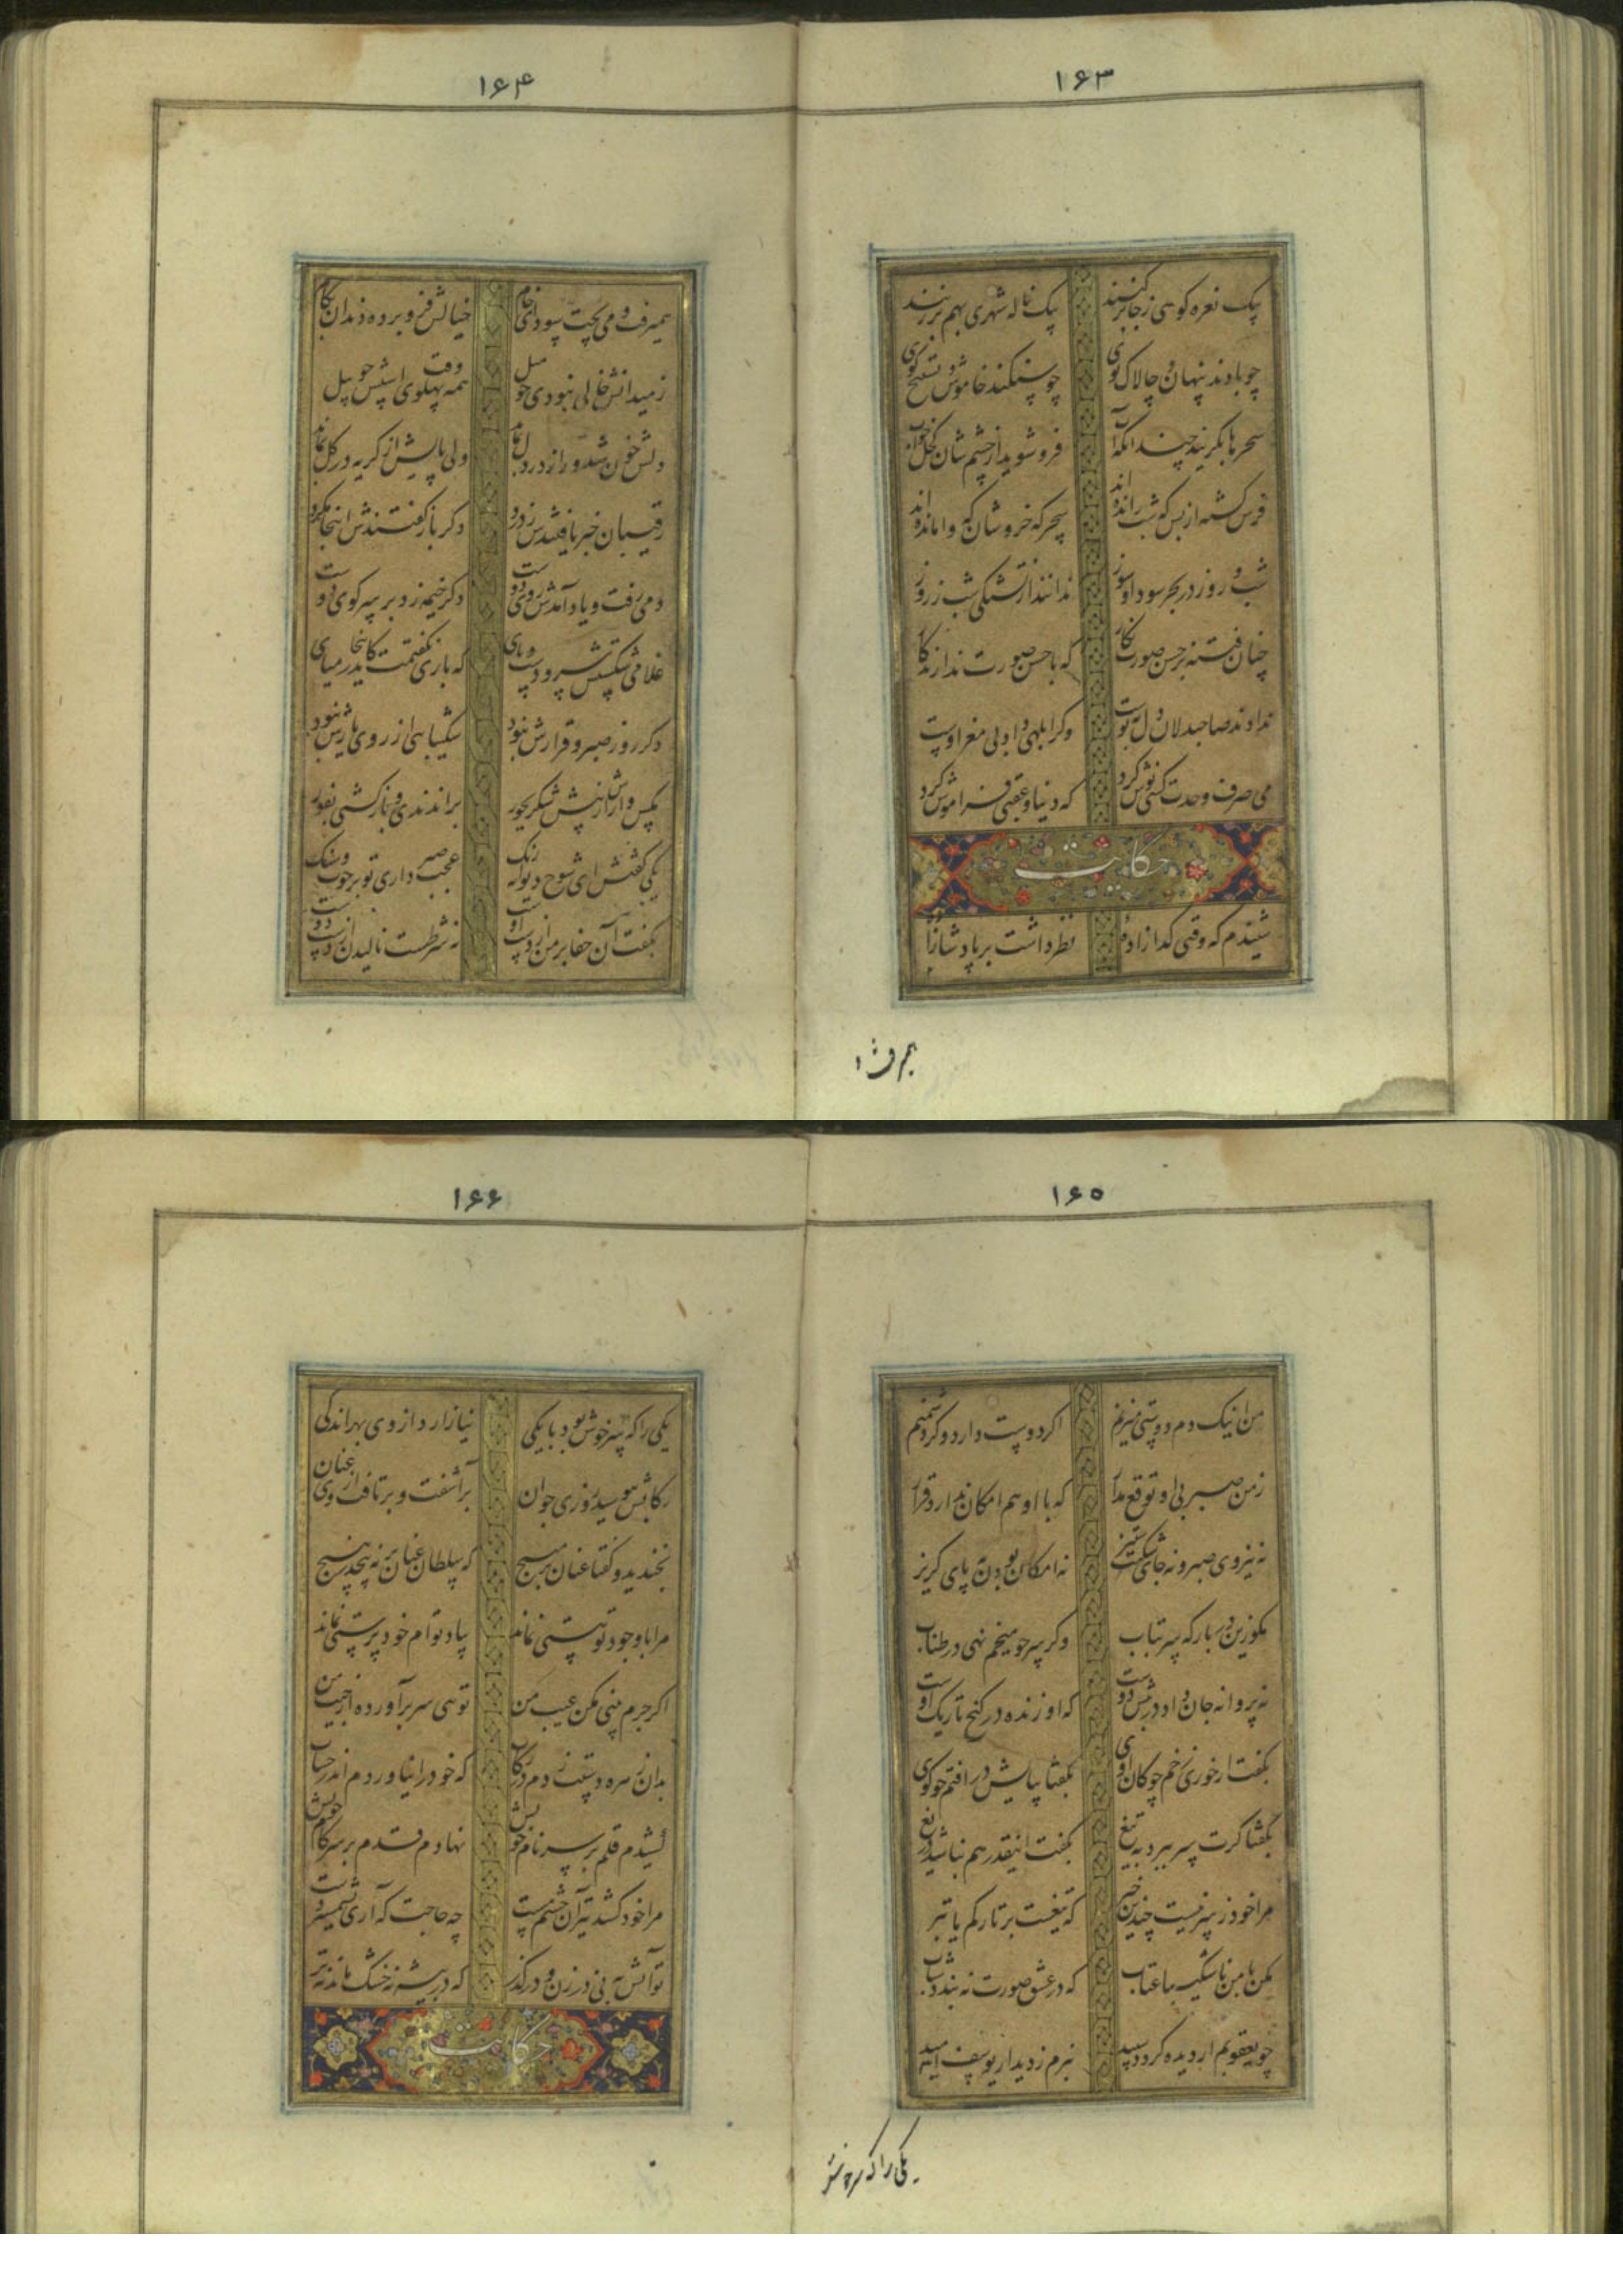 ۱۶۳
بیک نعره کوهی ز جا برکنند بیک ناله شهری بهم برزنند
چو بادند پنهان و چالاک پوی چو سنکند خاموش و تسبیح کوی
سحرها بکریند چندانکه آب فرو شوید از چشم شان کحل خواب
فرس کشته از بس که شب رانده اند سحرکه خروشان که وامانده اند
شب و روز در بحر سودا و سوز ندانند از تشنکی شب ز روز
چنان فتنه بر حسن صورت نکار که با حسن صورت ندارند کار
ندادند صاحبدلان دل بپوست وکر ابلهی داد بی مغز اوست
می صرف وحدت کسی نوش کرد که دنیا و عقبی فراموش کرد
حکایت
شنیدم که وقتی کدازاده نظر داشت بر پادشازاده
همیرفت و
۱۶۴
همیرفت و می پخت سودای خام خیالش فرو برده دندان بکام
ز میدانش خالی نبودی چو میل همه وقت پهلوی اسپش چو پیل
دلش خون شد و راز در دل بماند ولی پایش از کریه در کل بماند
رقیبان خبر یافتندش ز درد دکر باره کفتندش اینجا مکرد
دمی رفت و یاد آمدش روی دوست دکر خیمه زد بر سر کوی دوست
غلامی شکستش سر و دست و پای که باری نکفتمت کاینجا میای
دکر روز صبر و قرارش نبود شکیبائی از روی یارش نبود
مکس وارش از پیش شکر بجور براندندی و بازکشتی بفور
یکی کفتش ای شوخ دیوانه رنک عجب صبر داری تو بر چوب و سنک
بکفت آن جفا بر من از دست اوست نه شرطست نالیدن از دست دوست
۱۶۵
من اینک دم دوستی میزنم اکر دوست دارد وکر دشمنم
ز من صبر بی او توقع مدار که با او هم امکان ندارد قرار
نه نیروی صبر و نه جای ستیز نه امکان بودن نه پای کریز
مکو زین در بارکه سر بتاب وکر سر چو میخم نهی در طناب
نه پروانه جان داد در پیش دوست که او زنده در کنج تاریک اوست
بکفت ار خوری زخم چوکان اوی بکفتا بپایش در افتم چو کوی
بکفتا کرت سر ببرد به تیغ بکفت اینقدر هم نباشد دریغ
مرا خود ز سر نیست چندین خبر که تیغست بر تارکم یا تبر
مکن با من ناشکیبا عتاب که در عشق صورت نه بندد شتاب
چو یعقوبم ار دیده کردد سپید نبرم ز دیدار یوسف امید
یکی را که سر خوش
۱۶۶
یکی را که سر خوش بود با یکی نیازارد از وی بهر اندکی
رکابش ببوسید روزی جوان برآشفت و برتافت از وی عنان
بخندید و کفتا عنان بر مپیچ که سلطان عنان بر نه پیچد ز هیچ
مرا با وجود تو هستی نماند بیاد توام خودپرستی نماند
اکر جرم بینی مکن عیب من توئی سر برآورده از جیب من
بدان زهره دستت زدم در رکاب که خود را نیاوردم اندر حساب
کشیدم قلم بر سر نام خویش نهادم قدم بر سر کام خویش
مرا خود کشد تیر آن چشم مست چه حاجت که آری بشمشیر دست
تو آتش به نی در زن و درکذر که در بیشه نه خشک ماند نه تر
حکایت